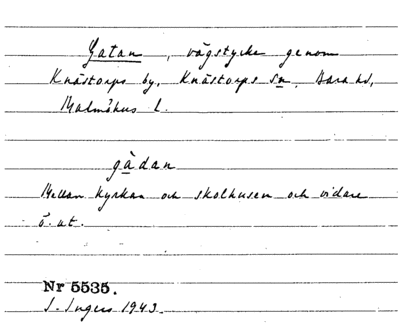 Gatan, vägstycke genom
Knästorps by, Knästorps sn, Bara hd,
Malmöhus l.
gådan
Mellan kyrkan och skolhusen och vidare
ö. ut.
Nr 5535.
I. Ingers 1943.